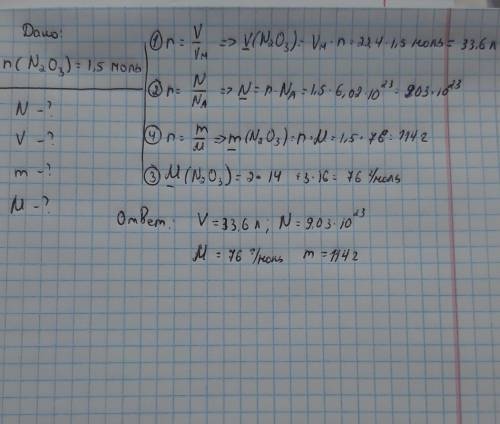 Дано:
n(N₂O₃)=1,5 моль
N-?
V-?
m-?
M-?
① n = V/Vм => V(N₂O₃)= Vм·n=22,4·1,5 моль = 33,6 л
② n= N/NA => N= n·NA=1,5·6,02·10²³=9,03·10²³
④ n= m/M => m(N₂O₃)=n·M=1,5·76=114 г
③ M(N₂O₃)=2·14+3·16=76 г/моль
Ответ: V=33,6 л; N=9,03·10²³
M=76 г/моль m=114 г